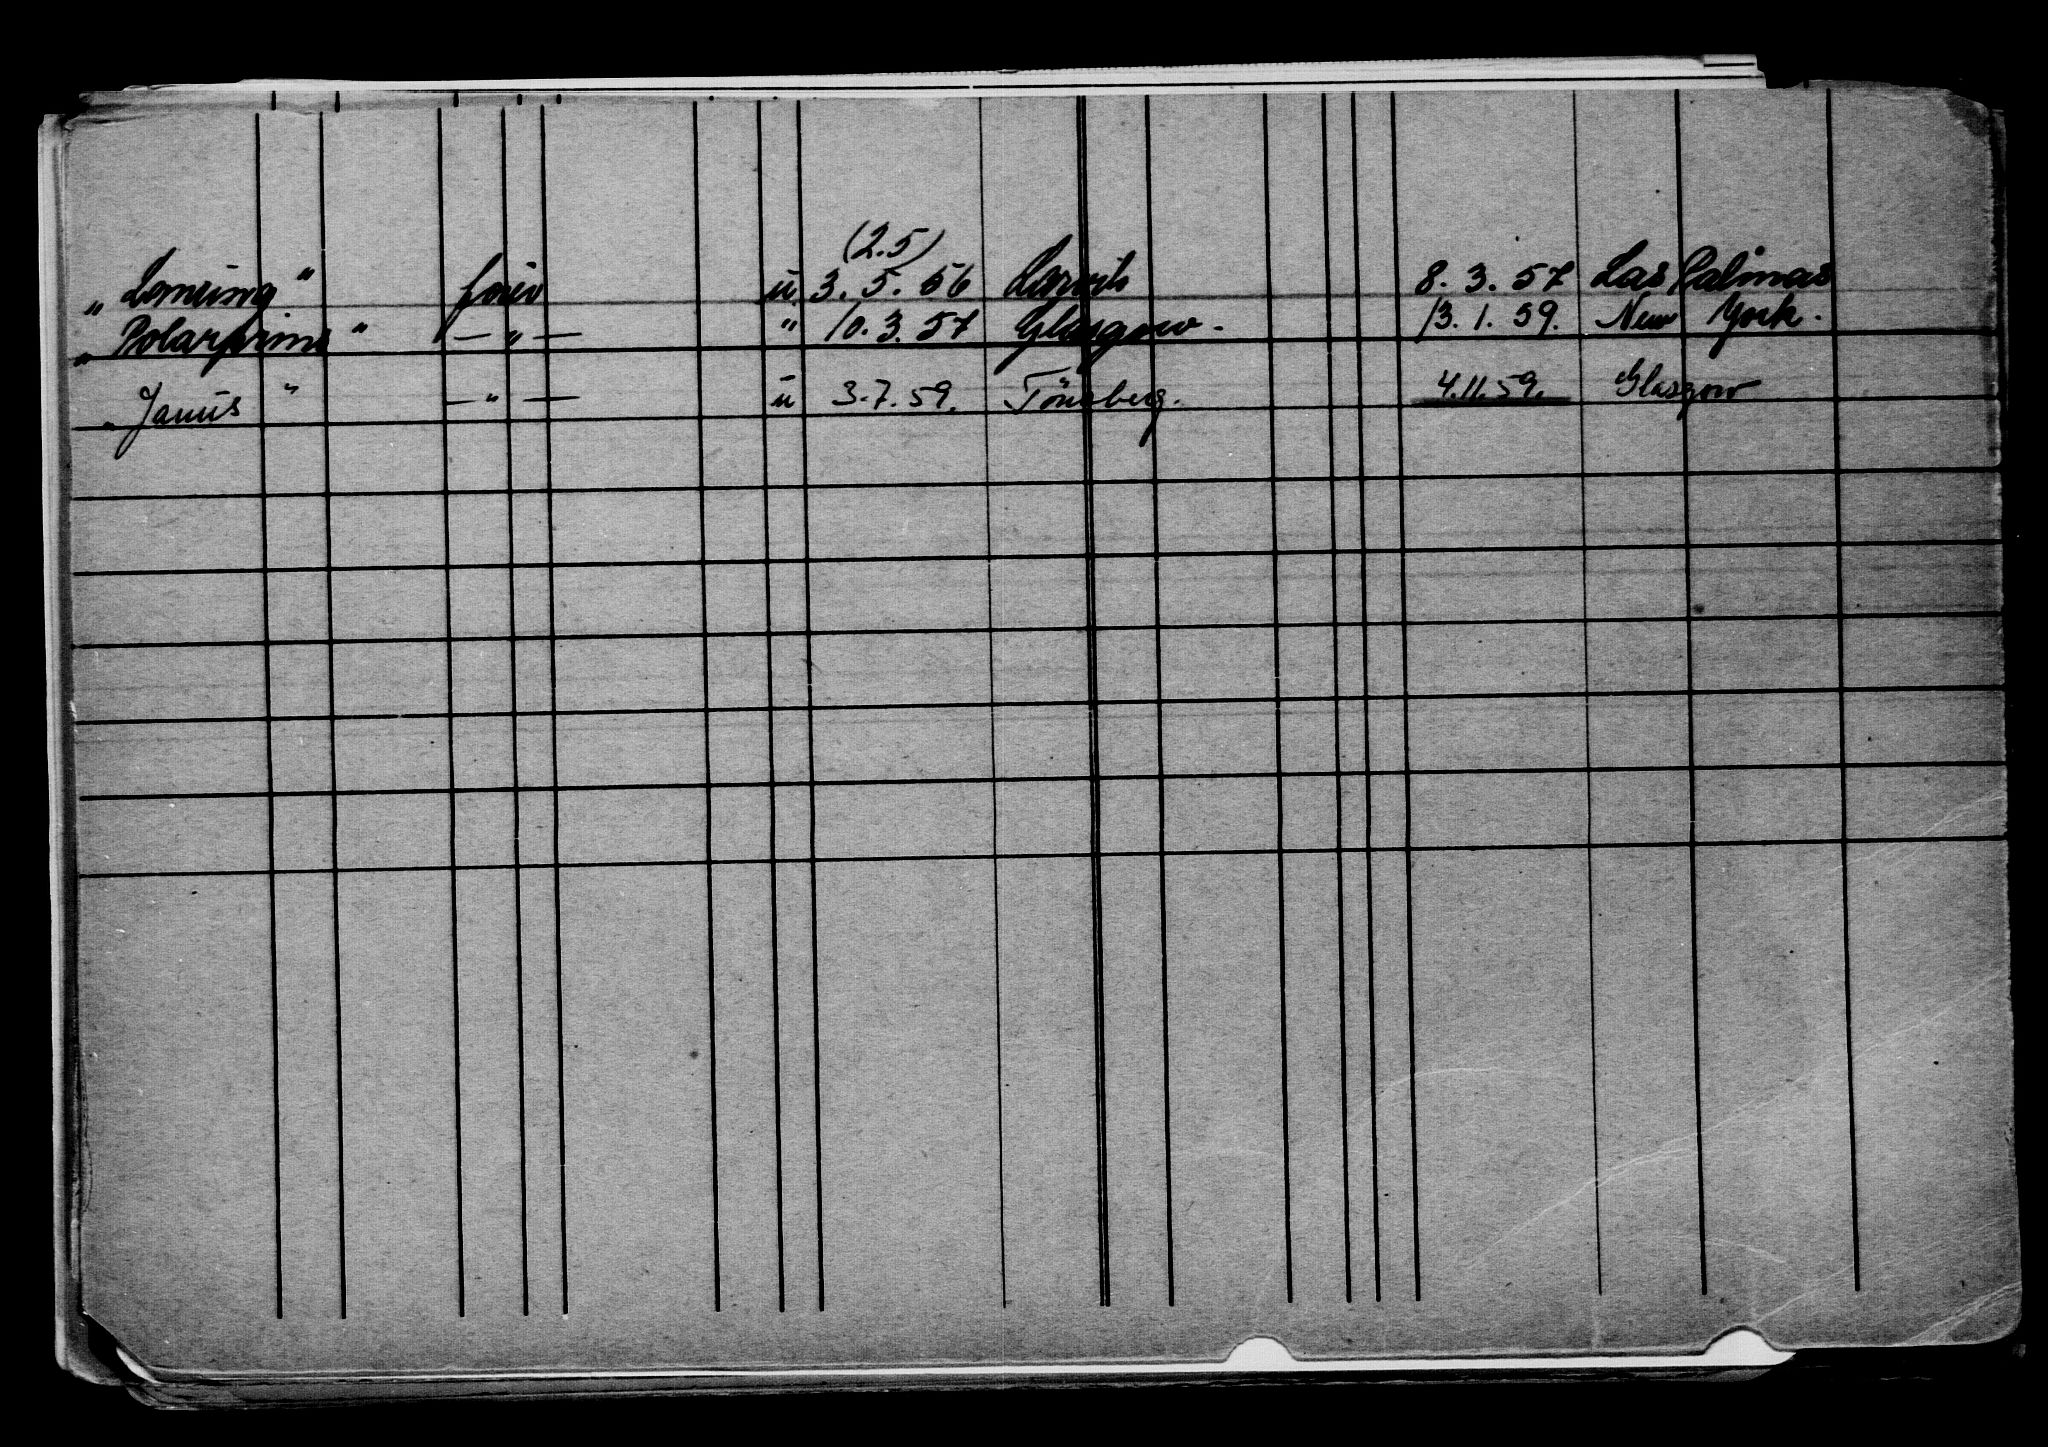 (2.5)
„ " fører u 3. 5. 56 Larvik 8. 3. 57 Las Palmas
„ Polarprins " — „ — " 10. 3. 57 Glasgow. 13. 1. 59. New York.
„ Janus " — „ — u 3. 7. 59. Tönsberg. 4.11.59. Glasgow